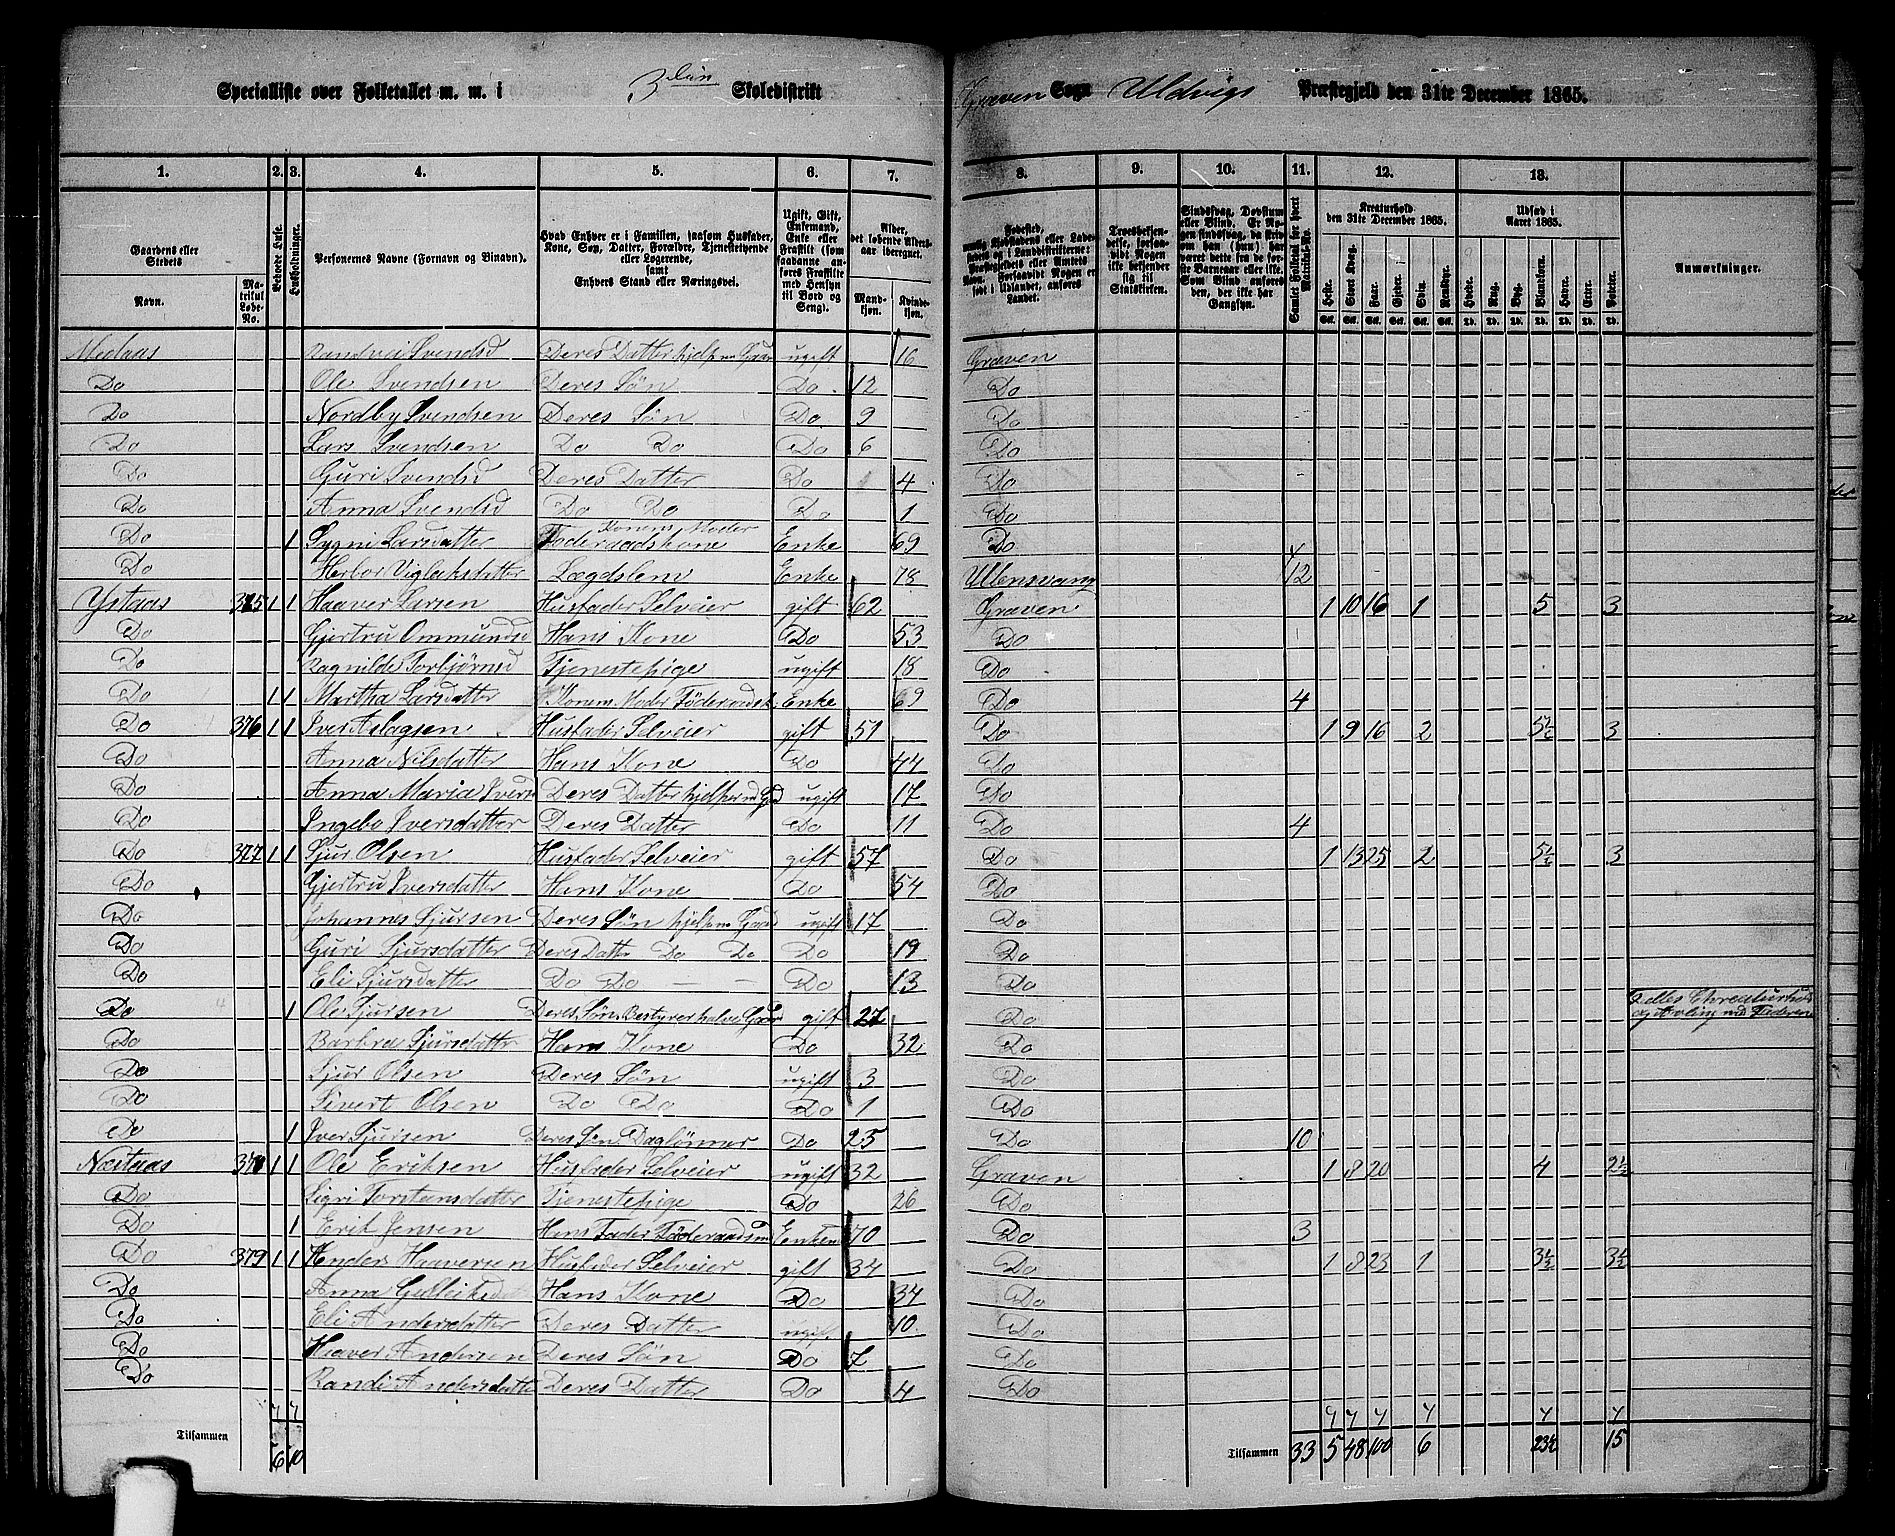 Specialliste over Folketallet m. m. i 3die Skoledistrikt Graven Sogn Uldvigs Præstegjeld den 31te December 1865.
1. 2. 3. 4. 5. 6. 7. 8. 9. 10. 11. 12. 13.
Gaardens eller Stedets
Navn.
Matrikul Løbe-No.
Beboede Huse.
Husholdninger.
Personernes Navne (Fornavn og Binavn).
Hvad Enhver er i Familien, saasom Husfader, Kone, Søn, Datter, Forældre, Tjenestetyende eller Logerende, samt Enhvers Stand eller Næringsvei.
Ugift, Gift, Enkemand, Enke eller Fraskilt (som saadanne anføres Fraskilte med Hensyn til Bord og Seng).
Alder, det løbende Aldersaar iberegnet.
Mandkjøn. Kvindekjøn.
Troesbekjendelse, forsaavidt Nogen ikke bekjender sig til Statskirken.
Sindssvag, Døvstum eller Blind.
Samlet Folketal for hvert Matrikul-No.
Kreaturhold den 31te December 1865.
Heste. Stort Kvæg. Faar. Gjeder. Sviin. Rensdyr.
Udsæd i Aaret 1865.
Hvede. Rug. Byg. Blandkorn. Havre. Erter. Poteter.
Anmærkninger.
Medaas Randvei Svendsd Deres Datter hjelp m Gaar ugift 16 Graven
Do Ole Svendsen Deres Søn Do 12 Do
Do Nordby Svendsen Deres Søn Do 9 Do
Do Lars Svendsen Do Do Do 6 Do
Do Guri Svendsd Deres Datter Do 4 Do
Do Anna Svendsd Do Do Do 1 Do
Do 1 Sygni Larsdatter Konens Moder Føderaadskone Enke 69 Do
Do Herbor Viglaksdatter Lægdslem Enke 78 Ullensvang 12
Ystaas 375 1 1 Haaver Larsen Husfader Selveier gift 62 Graven 1 10 16 1 5 3
Do Gjertru Ommundsd Hans Kone Do 53 Do
Do Ragnilde Torbjørnsd Tjenestepige ugift 18 Do
Do 1 1 Martha Larsdatter Konens Moder Føderaadsk Enke 69 Do 4
Do 376 1 1 Iver Aslagsen Husfader Selveier gift 51 Do 1 9 16 2 5½ 3
Do Anna Nilsdatter Hans Kone Do 44 Do
Do Anna Maria Iversd Deres Datter hjelper m Gd ugift 17 Do
Do Ingebo Iversdatter Deres Datter Do 11 Do 4
Do 377 1 1 Sjur Olsen Husfader Selveier gift 57 Do 1 13 25 2 5½ 3
Do Gjertru Iversdatter Hans Kone Do 54 Do
Do Johannes Sjursen Deres Søn hjelp m Gaard ugift 17 Do
Do Guri Sjursdatter Deres Datter Do Do Do 19 Do
Do Eli Sjursdatter Do Do — — Do 13 Do
Do 1 Ole Sjursen Deres Søn Bestyrer halve Gaar gift 27 Do
Do Barbra Sjursdatter Hans Kone Do 32 Do
Do Sjur Olsen Deres Søn ugift 3 Do
Do Sivert Olsen Do Do Do 1 Do
Do 1 Iver Sjursen Deres Søn Daglønner Do 25 Do 10
Næstaas 378 1 1 Ole Eriksen Husfader Selveier ugift 32 Graven 1 8 20 4 2½
Do Sigri Torstensdatter Tjenestepige Do 26 Do
Do 1 Erik Jensen Hans Fader Føderaadsm Enkem 70 Do 3
Do 379 1 1 Anders Haaversen Husfader Selveier gift 34 Do 1 8 23 1 3½ 3½
Do Anna Gulleiksdat Hans Kone Do 34 Do
Do Eli Andersdatter Deres Datter ugift 10 Do
Do Haaver Andersen Deres Søn Do 7 Do
Do Randi Andersdatter Deres Datter Do 4 Do
Tilsammen 6 10 Tilsammen 33 5 48 100 6 23½ 15